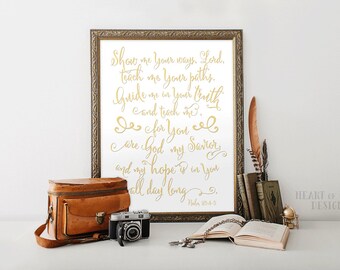 Show me Your ways, Lord,
teach me Your paths.
Guide me in Your truth
and teach me,
for You
are God my Savior,
and my hope is in You
all day long
Psalm 25:4-5
HEART OF
DESIGN